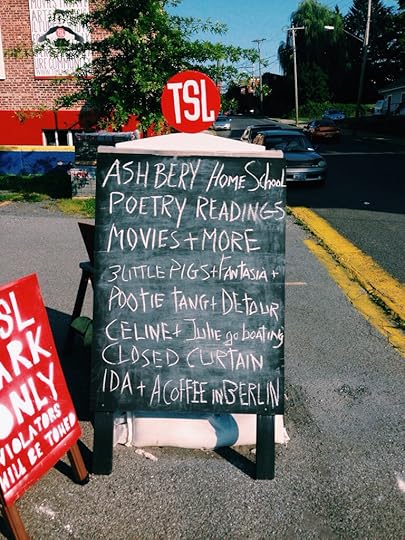 TSL
ASHBERY HOME SCHOOL
POETRY READINGS
MOVIES + MORE
3 LITTLE PIGS + FANTASIA +
POOTIE TANG + DETOUR
CELINE + Julie go boating
CLOSED CURTAIN
IDA + A COFFEE IN BERLIN
SL
ARK
ONLY
VIOLATORS
WILL BE TOWED